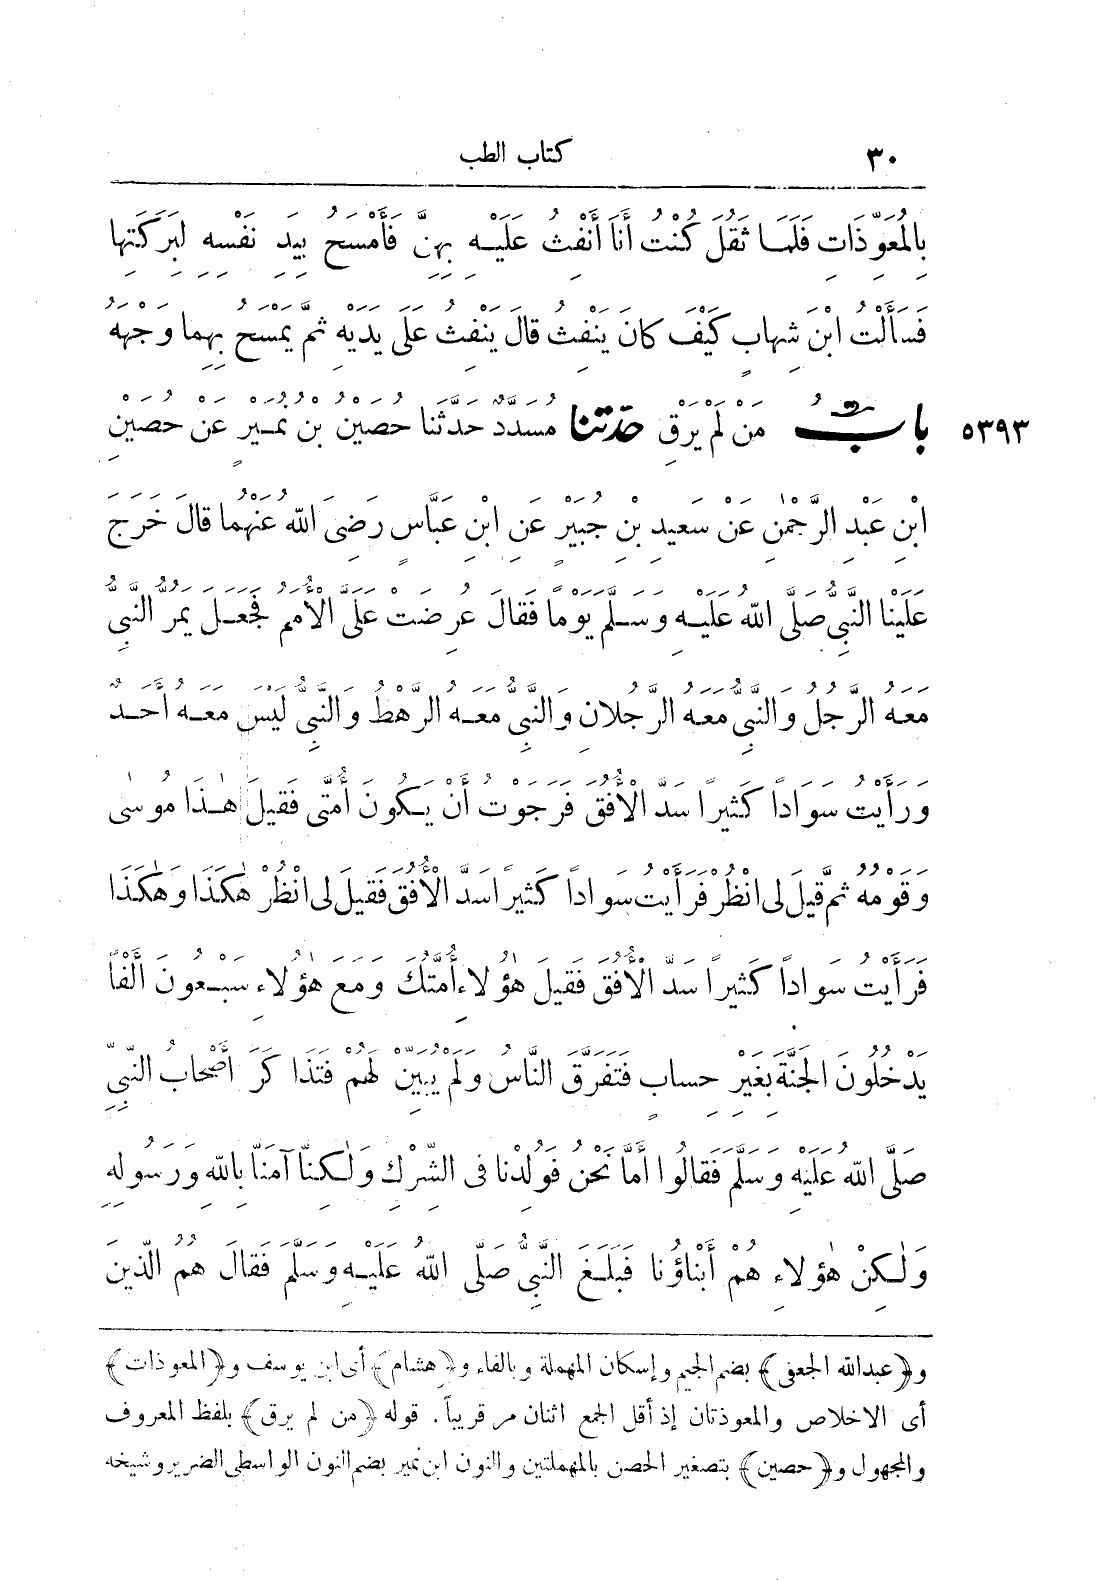 ٣٠ كتاب الطب
بِالْمُعَوِّذَاتِ فَلَمَا ثَقُلَ كُنْتُ أَنَا أَنْفِثُ عَلَيْهِ بِهِنَّ فَأَمْسَحُ بِيَدِ نَفْسِهِ لِبَرَكَتِهَا
فَسَأَلْتُ ابْنَ شِهَابٍ كَيْفَ كَانَ يَنْفِثُ قَالَ يَنْفِثُ عَلَى يَدَيْهِ ثُمَّ يَمْسَحُ بِهِمَا وَجْهَهُ
٥٣٩٣ بابُ مَنْ لَمْ يَرْقِ حَدّثنا مُسَدَّدٌ حَدَّثَنَا حُصَيْنُ بْنُ نُمَيْرٍ عَنْ حُصَيْنِ
ابْنِ عَبْدِ الرَّحْمٰنِ عَنْ سَعِيدِ بْنِ جُبَيْرٍ عَنِ ابْنِ عَبَّاسٍ رَضِىَ اللهُ عَنْهُمَا قَالَ خَرَجَ
عَلَيْنَا النَّبِىُّ صَلَّى اللهُ عَلَيْهِ وَسَلَّمَ يَوْماً فَقَالَ عُرِضَتْ عَلَىَّ الْأُمَمُ فَجَعَلَ يَمُرُّ النَّبِىُّ
مَعَهُ الرَّجُلُ وَالنَّبِىُّ مَعَهُ الرَّجُلَانِ وَالنَّبِىُّ مَعَهُ الرَّهْطُ وَالنَّبِىُّ لَيْسَ مَعَهُ أَحَدٌ
وَرَأَيْتُ سَوَاداً كَثِيراً سَدَّ الْأُفُقَ فَرَجَوْتُ أَنْ يَكُونَ أُمَّتِى فَقِيلَ هٰذَا مُوسَى
وَقَوْمُهُ ثُمَّ قِيلَ لِى انْظُرْ فَرَأَيْتُ سَوَاداً كَثِيراً سَدَّ الْأُفُقَ فَقِيلَ لِى انْظُرْ هٰكَذَا وَهٰكَذَا
فَرَأَيْتُ سَوَاداً كَثِيراً سَدَّ الْأُفُقَ فَقِيلَ هٰؤُلَاءِ أُمَّتُكَ وَمَعَ هٰؤُلَاءِ سَبْعُونَ أَلْفاً
يَدْخُلُونَ الْجَنَّةَ بِغَيْرِ حِسَابٍ فَتَفَرَّقَ النَّاسُ وَلَمْ يُبَيَّنْ لَهُمْ فَتَذَاكَرَ أَصْحَابُ النَّبِىِّ
صَلَّى اللهُ عَلَيْهِ وَسَلَّمَ فَقَالُوا أَمَّا نَحْنُ فَوُلِدْنَا فِى الشِّرْكِ وَلٰكِنَّا آمَنَّا بِاللهِ وَرَسُولِهِ
وَلٰكِنْ هٰؤُلَاءِ هُمْ أَبْنَاؤُنَا فَبَلَغَ النَّبِىَّ صَلَّى اللهُ عَلَيْهِ وَسَلَّمَ فَقَالَ هُمُ الَّذِينَ
و﴿عبدالله الجعفى﴾ بضم الجيم وإسكان المهملة وبالفاء و﴿هشام﴾ أى ابن يوسف و﴿المعوذات﴾
أى الاخلاص والمعوذتان إذ أقل الجمع اثنان مر قريباً. قوله ﴿من لم يرق﴾ بلفظ المعروف
والمجهول و﴿حصين﴾ بتصغير الحصن بالمهملتين والنون ابن نمير بضم النون الواسطى الضرير وشيخه